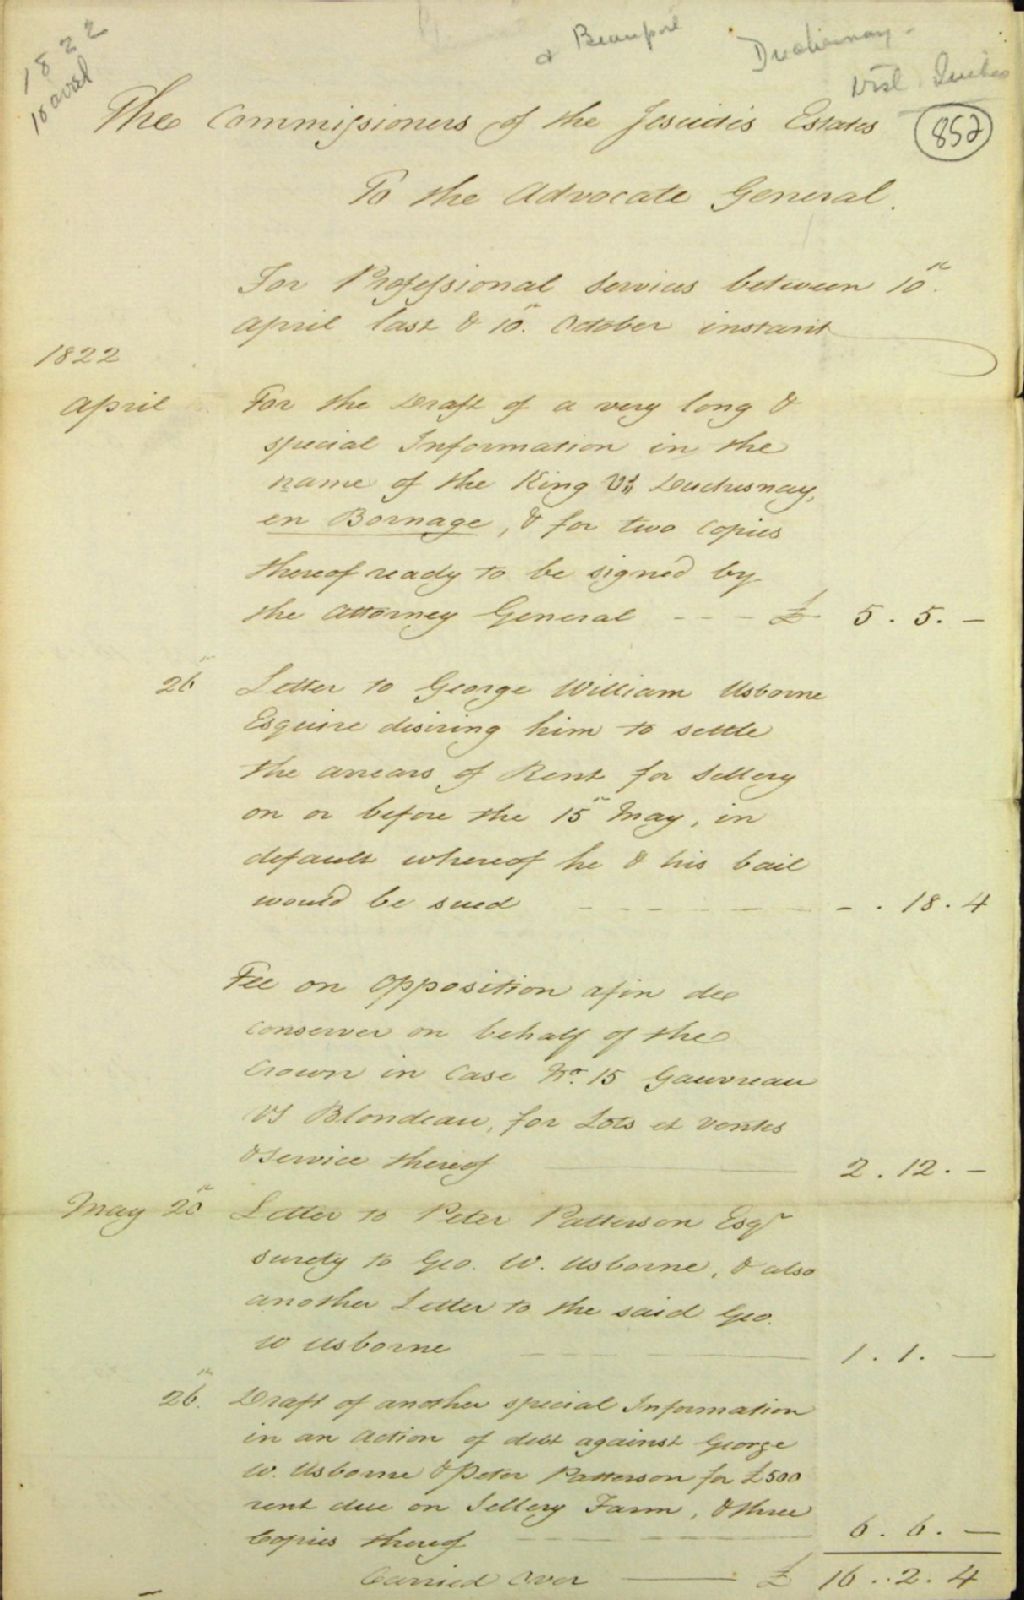 1822
10 avril
& Beauport
Duchesnay -
vs Quebec
852
The Commissioners of the Jesuits Estates
To the Advocate General.
For Professional Services between 10th.
April last & 10th. October instant
1822
April
For the Draft of a very long &
special Information in the
name of the King Vs Duchesnay,
en Bornage, & for two Copies
thereof ready to be signed by
the Attorney General - - - £ 5 . 5 . -
26th
Letter to George William Usborne
Esquire desiring him to settle
the arrears of Rent for Sillery
on or before the 15th May, in
default whereof he & his bail
would be sued - . 18 . 4
Fee on Opposition afin de
conserver on behalf of the
Crown in Case No. 15 Gauvreau
vs Blondeau, for Lots et Ventes
& Service thereof 2 . 12 . -
May 20th
Letter to Peter Patterson Esqr
surety to Geo. W. Usborne, & also
another Letter to the said Geo.
W Usborne 1 . 1 . -
26th.
Draft of another special Information
in an Action of debt against George
W. Usborne & Peter Patterson for £500
rent due on Sillery Farm, & three
Copies thereof 6 . 6 . -
Carried Over £ 16 . . 2 . 4